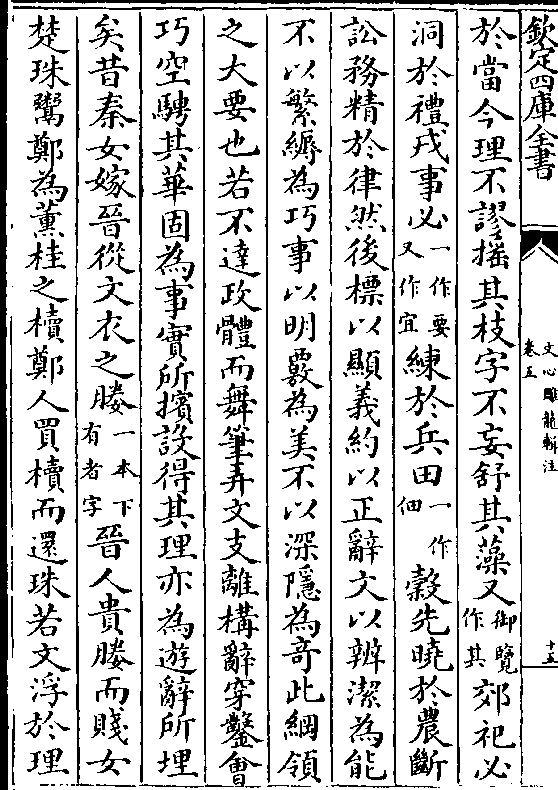 欽定四庫全書
文心雕龍輯注
卷五
十五
於當今理不謬揺其枝字不妄舒其藻又御覽作其郊祀必
洞於禮戎事必一作要又作宜練於兵田一作佃穀先曉於農斷
訟務精於律然後標以顯義約以正辭文以辨潔為能
不以繁縟為巧事以明覈為美不以深隱為奇此綱領
之大要也若不達政體而舞筆弄文支離構辭穿鑿會
巧空騁其華固為事實所擯設得其理亦為遊辭所埋
矣昔秦女嫁晉從文衣之媵一本下有者字晉人貴媵而賤女
楚珠鬻鄭為薰桂之櫝鄭人買櫝而還珠若文浮於理